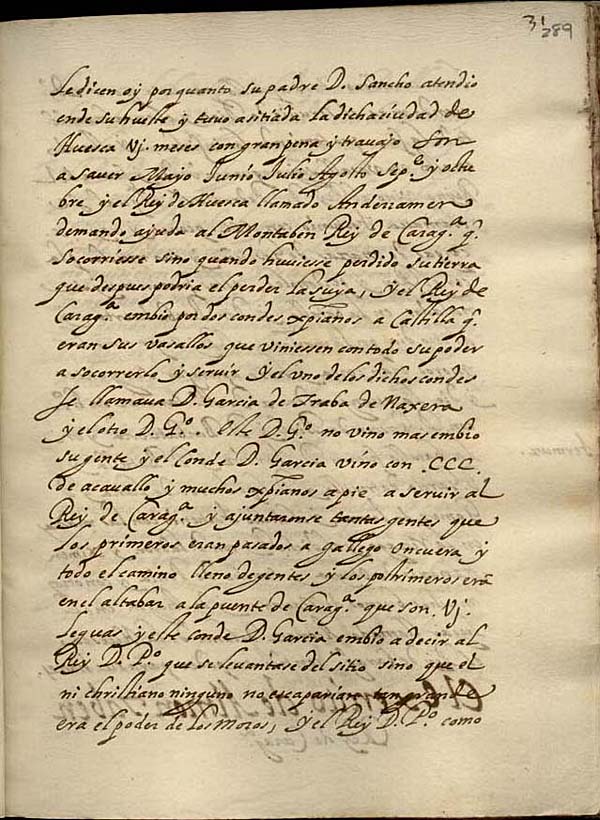 31
289
Le dicen oy por quanto su padre D. Sancho atendio
ende su hueste y tuvo asitiada la dicha ciudad de
Huesca Vj. meses con gran pena y travajo son
a saver Mayo Junio Julio Agosto Sep.e y octu
bre y el Rey de Huesca llamado Anderramen
demando ayuda al Montaben Rey de Carag.a q.
Socorriesse sino quando huviesse perdido su tierra
que despues podria el perder la suya, y el Rey de
Carag.a embio por dos condes xpianos a Castilla q.
eran sus vasallos que viniessen con todo su poder
a socorrerlo y servir y el uno de los dichos condes
se llamava D. Garcia de Traba de Naxera
y el otro D. G.o. Este D. G.o no vino mas embio
su gente y el Conde D. Garcia vino con .CCC.
de acavallo y muchos xpianos a pie a servir al
Rey de Carag.a y ajuntaronse tantas gentes que
los primeros eran pasados a gallego en cuera y
todo el camino lleno de gentes y los postrimeros erā
en el altabaz a la puente de Carag.a que son .Vj.
Leguas y este conde D. Garcia embio a decir al
Rey D. P.o que se levantase del sitio sino que el
ni christiano ninguno no escapariā tan grande
era el poder de los moros, y el Rey D. P.o como